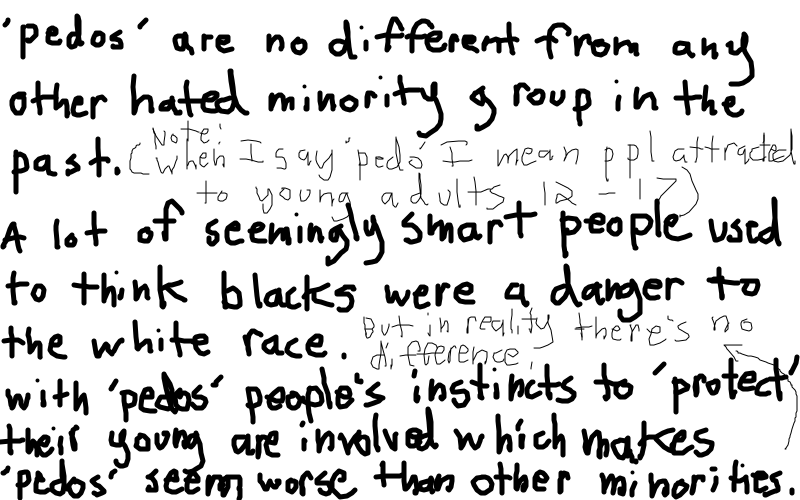 'pedos' are no different from any
other hated minority group in the
past. (Note:
when I say 'pedo' I mean ppl attracted
to young adults 12 - 17)
A lot of seemingly smart people used
to think blacks were a danger to
the white race. But in reality there's no
difference.
with 'pedos' people's instincts to 'protect'
their young are involved which makes
'pedos' seem worse than other minorities.